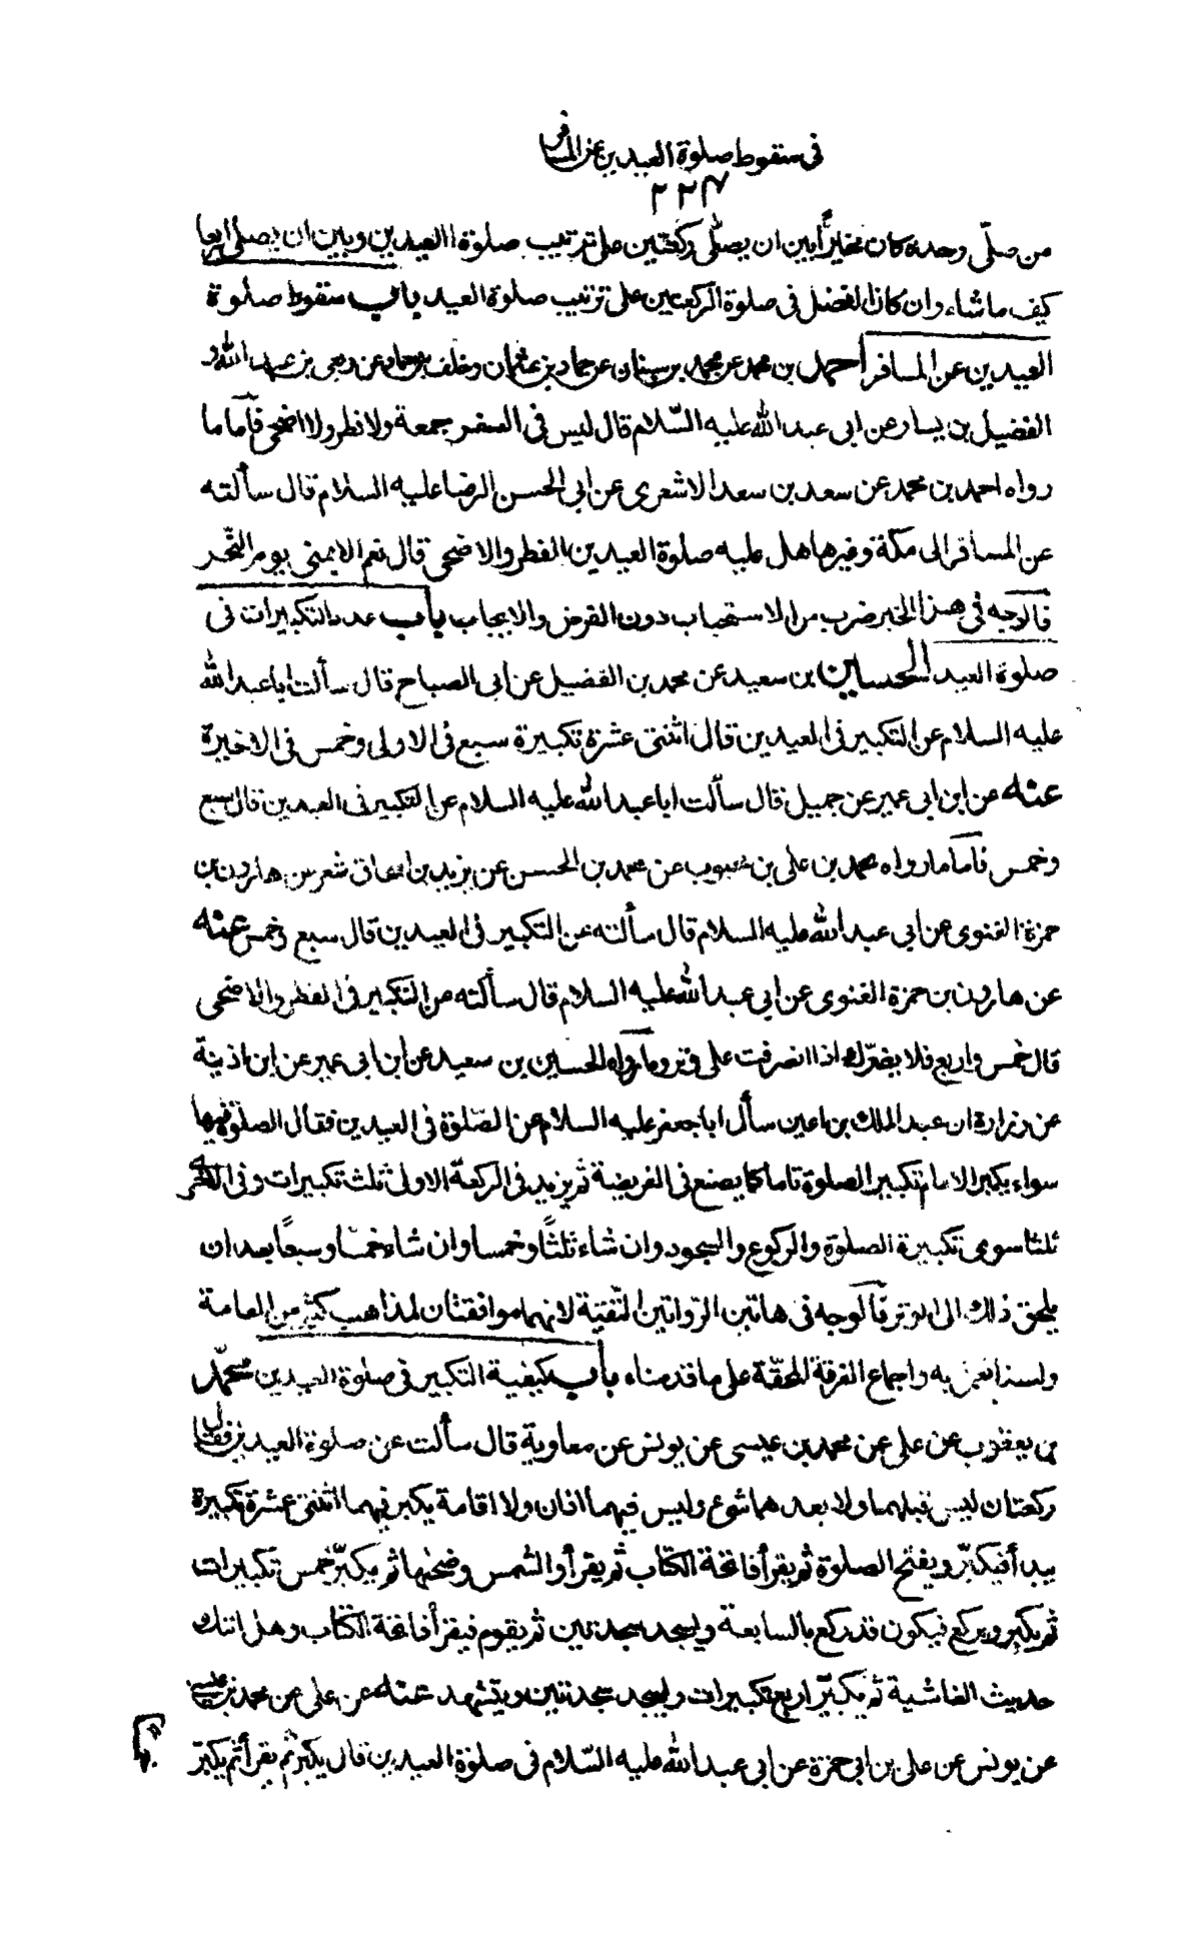 فى سقوط صلوة العيدين عن المسافر
٢٢٧
من صلّى وحده كان مخيراً بين ان يصلّى ركعتين على ترتيب صلوة العيدين وبين ان يصلى اربعا
كيف ما شاء وان كان الفضل فى صلوة الركعتين على ترتيب صلوة العيد باب سقوط صلوة
العيدين عن المسافر احمد بن محمد عن محمد بن سنان عن حماد بن عثمان وخلف بن حماد عن ربعى بن عبد الله و
الفضيل بن يسار عن ابى عبد الله عليه السّلام قال ليس فى السفر جمعة ولا فطر ولا اضحى فاما ما
رواه احمد بن محمد عن سعد بن سعد الاشعرى عن ابى الحسن الرضا عليه السلام قال سألته
عن المسافر الى مكة وغيرها هل عليه صلوة العيدين الفطر والاضحى قال نعم الا بمنى يوم النّحر
فالوجه فى هذا الخبر ضرب من الاستحباب دون الفرض والايجاب باب عدد التكبيرات فى
صلوة العيد الحسين بن سعيد عن محمد بن الفضيل عن ابى الصباح قال سألت ابا عبد الله
عليه السلام عن التكبير فى العيدين قال اثنتى عشرة تكبيرة سبع فى الاولى وخمس فى الاخيرة
عنه عن ابن ابى عمير عن جميل قال سألت ابا عبد الله عليه السلام عن التكبير فى العيدين قال سبع
وخمس فاما ما رواه محمد بن على بن محبوب عن محمد بن الحسن عن يزيد بن اسحاق شعر عن هارون بن
حمزة الغنوى عن ابى عبد الله عليه السلام قال سألته عن التكبير فى العيدين قال سبع وخمس عنه
عن هارون بن حمزة الغنوى عن ابى عبد الله عليه السلام قال سألته عن التكبير فى الفطر والاضحى
قال خمس واربع فلا يضرّك اذا انصرفت على وتر وما رواه الحسين بن سعيد عن ابن ابى عمير عن ابن اذينة
عن زرارة ان عبد الملك بن اعين سأل ابا جعفر عليه السلام عن الصّلوة فى العيدين فقال الصلوة فيهما
سواء يكبر الامام تكبير الصلوة تاما كما يصنع فى الفريضة ثم يزيد فى الركعة الاولى ثلث تكبيرات وفى الاخرى
ثلثا سوى تكبيرة الصلوة والركوع والسجود وان شاء ثلثاً وخمسا وان شاء خمسا وسبعاً بعد ان
يلحق ذلك الى الوتر فالوجه فى هاتين الرّوايتين التّقية لانهما موافقتان لمذاهب كثير من العامة
ولسنا نعمل به واجماع الفرقة المحقّة على ما قدمناه باب كيفية التكبير فى صلوة العيدين محمّد
بن يعقوب عن على عن محمد بن عيسى عن يونس عن معاوية قال سألت عن صلوة العيدين فقال
ركعتان ليس قبلهما ولا بعدهما شىء وليس فيهما اذان ولا اقامة يكبر فيهما اثنتى عشرة تكبيرة
يبدأ فيكبّر ويفتح الصلوة ثم يقرأ فاتحة الكتاب ثم يقرأ والشمس وضحيها ثم يكبّر خمس تكبيرات
ثم يكبر ويركع فيكون قد ركع بالسابعة ويسجد سجدتين ثم يقوم فيقرأ فاتحة الكتاب وهل اتيك
حديث الغاشية ثم يكبّر اربع تكبيرات ويسجد سجدتين ويتشهد عنه عن على عن محمد بن عيسى
عن يونس عن على بن ابى حمزة عن ابى عبد الله عليه السّلام فى صلوة العيدين قال يكبر ثم يقرأ ثم يكبّر